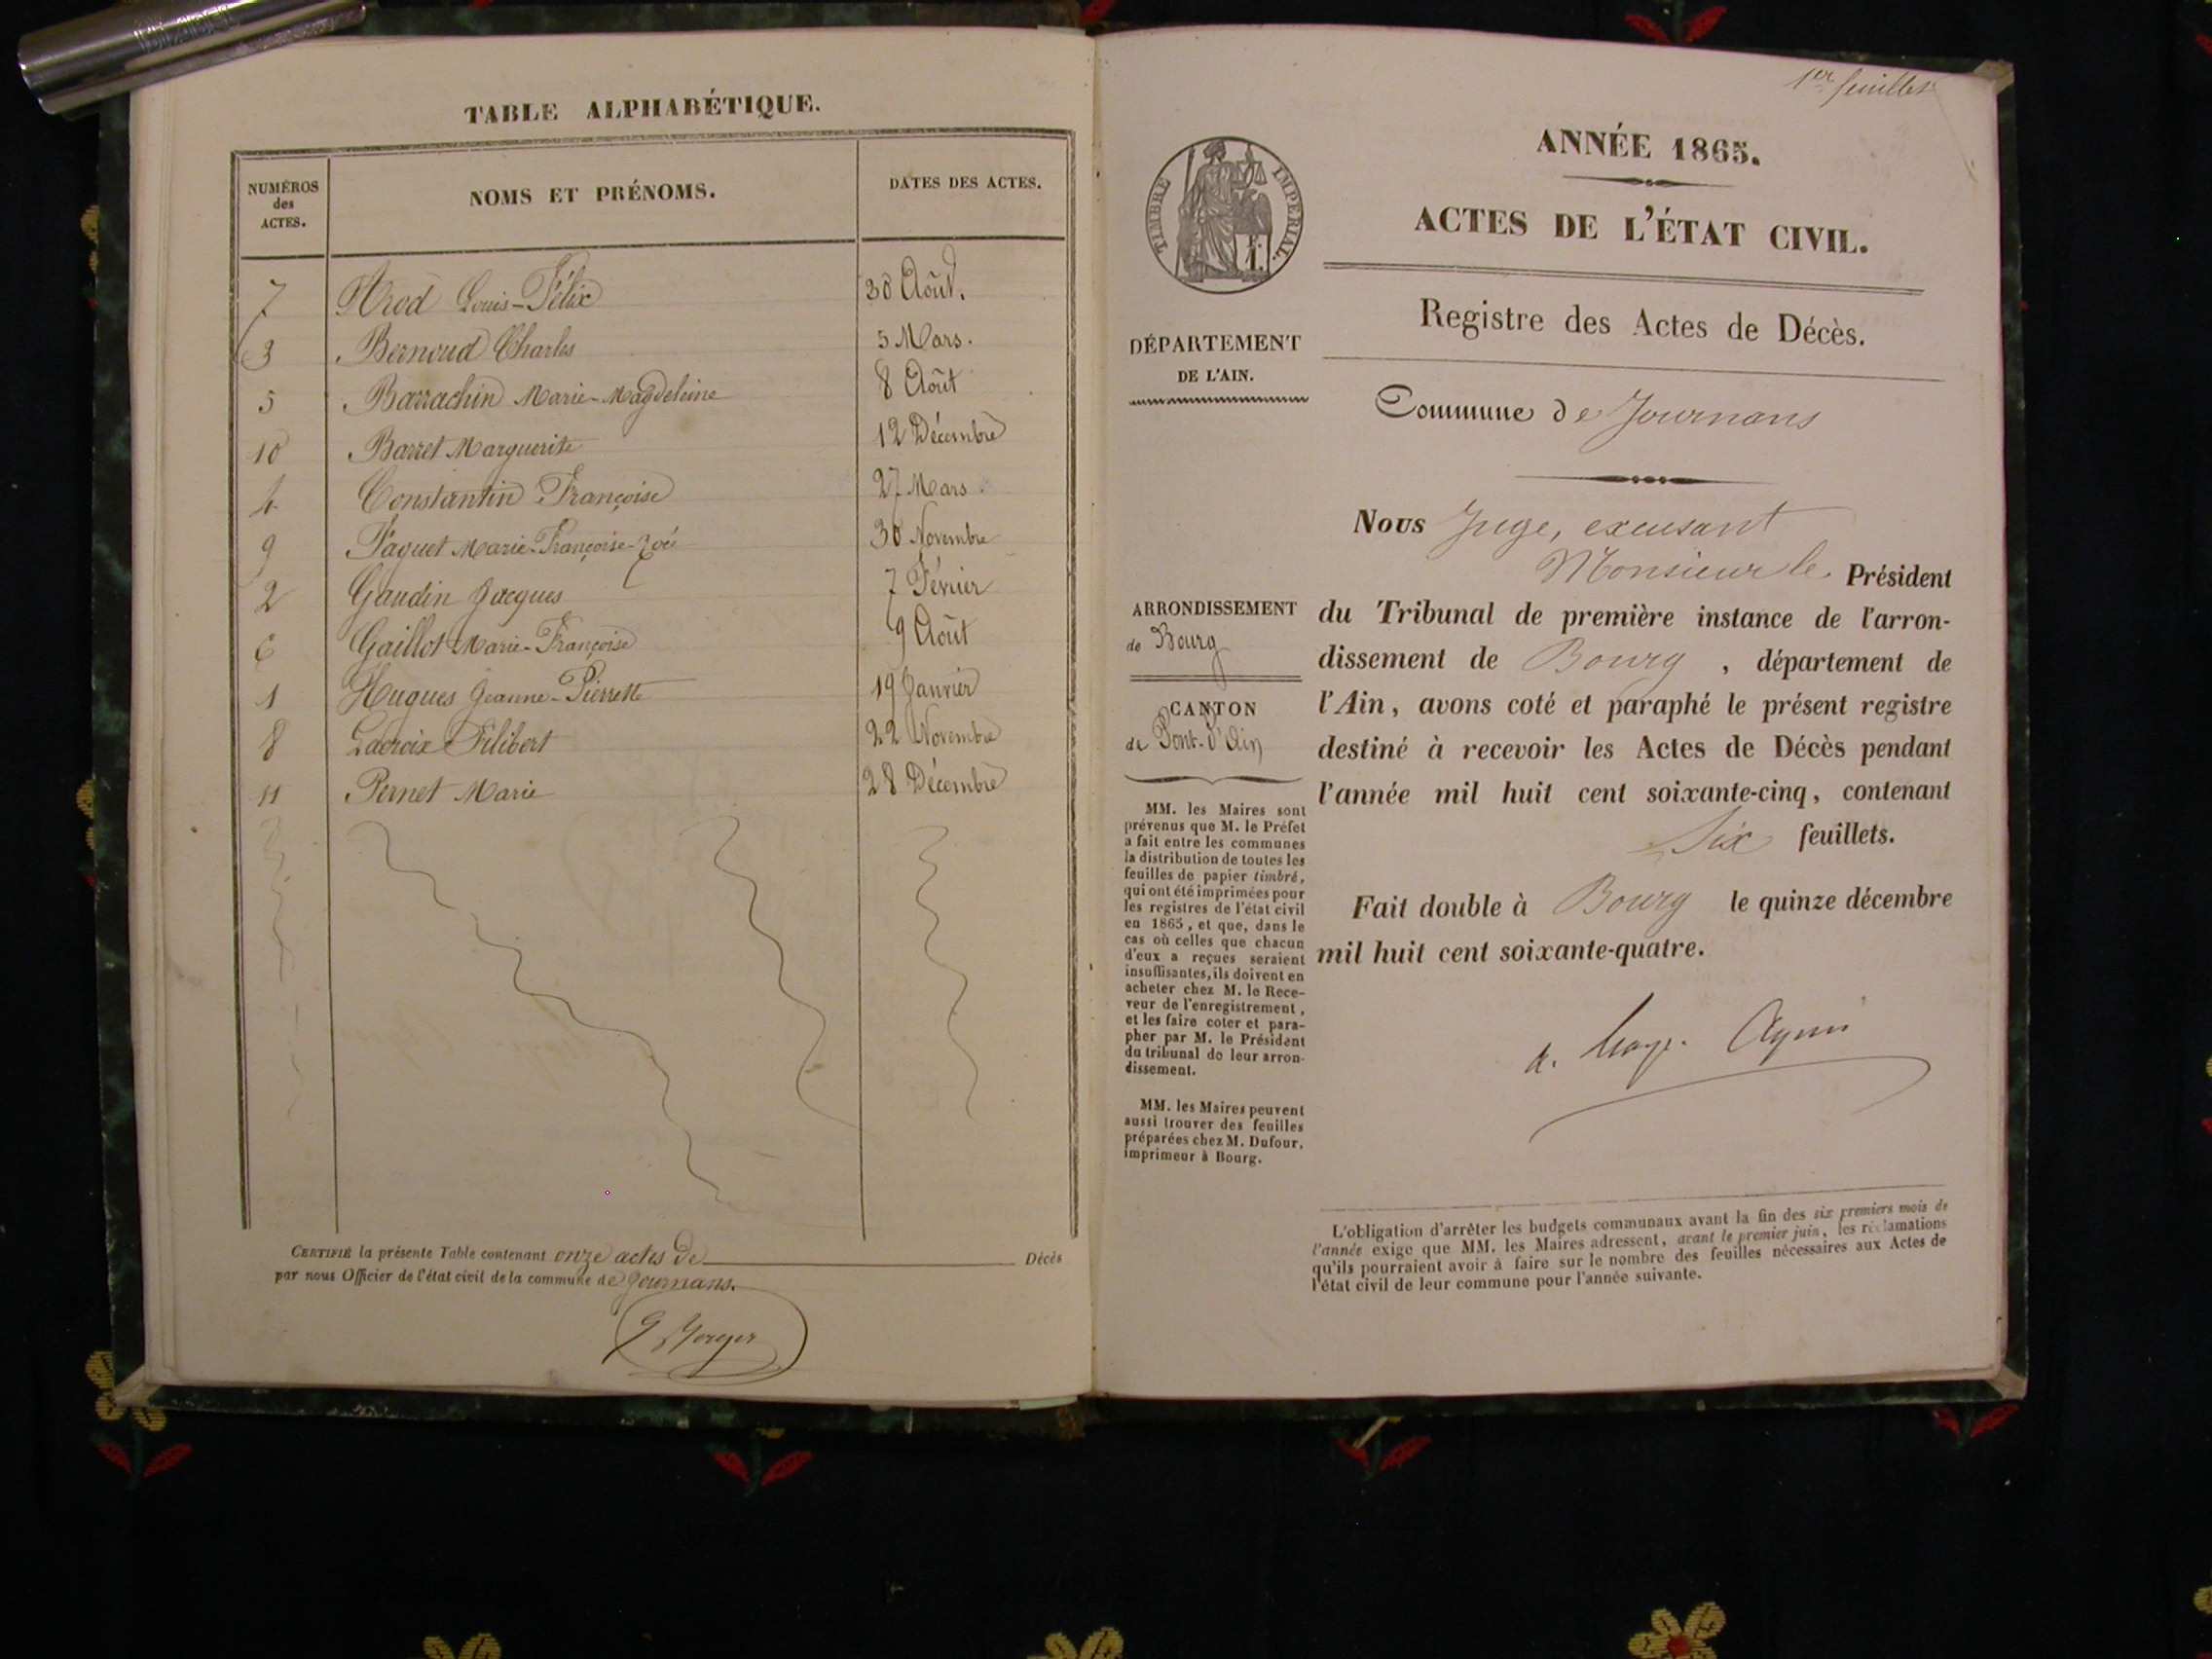 TABLE ALPHABÉTIQUE.
NUMÉROS des ACTES.
NOMS ET PRÉNOMS.
DATES DES ACTES.
7 Arod Louis-Félix 30 Août.
3 Bernoud Charles 5 Mars.
5 Barrachin Marie-Magdeleine 8 Août
10 Barret Marguerite 12 Décembre
4 Constantin Françoise 27 Mars.
9 Faguet Marie-Françoise-Zoé 30 Novembre
2 Gaudin Jacques 7 Février
6 Gaillot Marie-Françoise 9 Août
1 Hugues Jeanne-Pierrette 19 Janvier
8 Lacroix Filibert 22 Novembre
11 Pernet Marie 28 Décembre
CERTIFIÉ la présente Table contenant onze actes de Décès
par nous Officier de l'état civil de la commune de Journans.
1er feuillet
TIMBRE IMPERIAL.
1 F.
ANNÉE 1865.
ACTES DE L'ÉTAT CIVIL.
Registre des Actes de Décès.
DÉPARTEMENT
DE L'AIN.
Commune de Journans
Nous Juge, excusant
Monsieur le Président
ARRONDISSEMENT
de Bourg
CANTON
de Pont-d'Ain
du Tribunal de première instance de l'arron-
dissement de Bourg, département de
l'Ain, avons coté et paraphé le présent registre
destiné à recevoir les Actes de Décès pendant
l'année mil huit cent soixante-cinq, contenant
Six feuillets.
Fait double à Bourg le quinze décembre
mil huit cent soixante-quatre.
MM. les Maires sont
prévenus que M. le Préfet
a fait entre les communes
la distribution de toutes les
feuilles de papier timbré,
qui ont été imprimées pour
les registres de l'état civil
en 1865, et que, dans le
cas où celles que chacun
d'eux a reçues seraient
insuffisantes, ils doivent en
acheter chez M. le Rece-
veur de l'enregistrement,
et les faire coter et para-
pher par M. le Président
du tribunal de leur arron-
dissement.
MM. les Maires peuvent
aussi trouver des feuilles
préparées chez M. Dufour,
imprimeur à Bourg.
L'obligation d'arrêter les budgets communaux avant la fin des six premiers mois de
l'année exige que MM. les Maires adressent, avant le premier juin, les réclamations
qu'ils pourraient avoir à faire sur le nombre des feuilles nécessaires aux Actes de
l'état civil de leur commune pour l'année suivante.